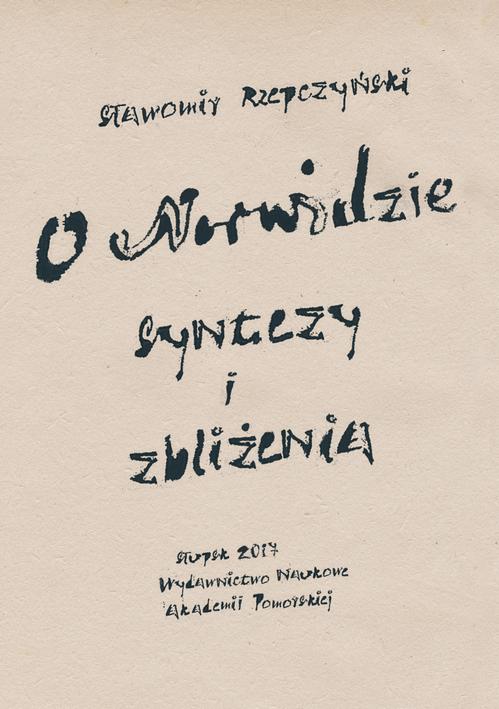 Sławomir Rzepczyński
O Norwidzie
syntezy
i
zbliżenia
Słupsk 2017
Wydawnictwo Naukowe
Akademii Pomorskiej